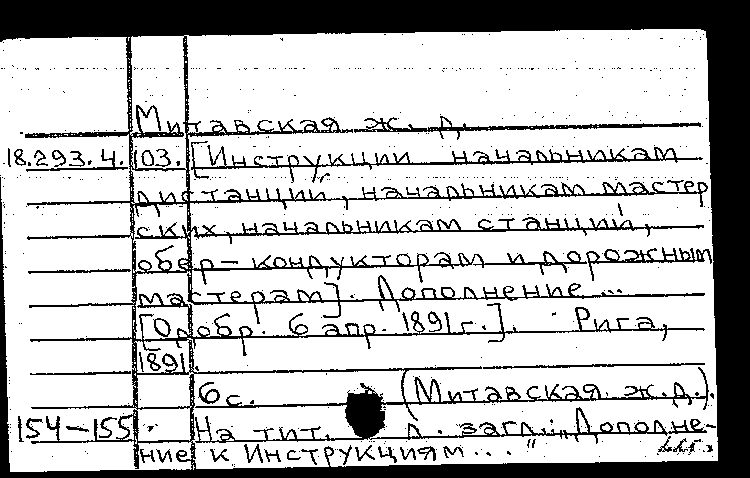 Митавская ж. д.
18.293.4. 103. [Инструкции начальникам
дистанций, начальникам мастер
ских, начальникам станций,
обер-кондукторам и дорожным
мастерам]. Дополнение...
[Одобр. 6 апр. 1891 г.]. Рига,
1891.
6 с. (Митавская ж.д.).
154-155. На тит. л. загл.: „Дополне-
ние к Инструкциям..."